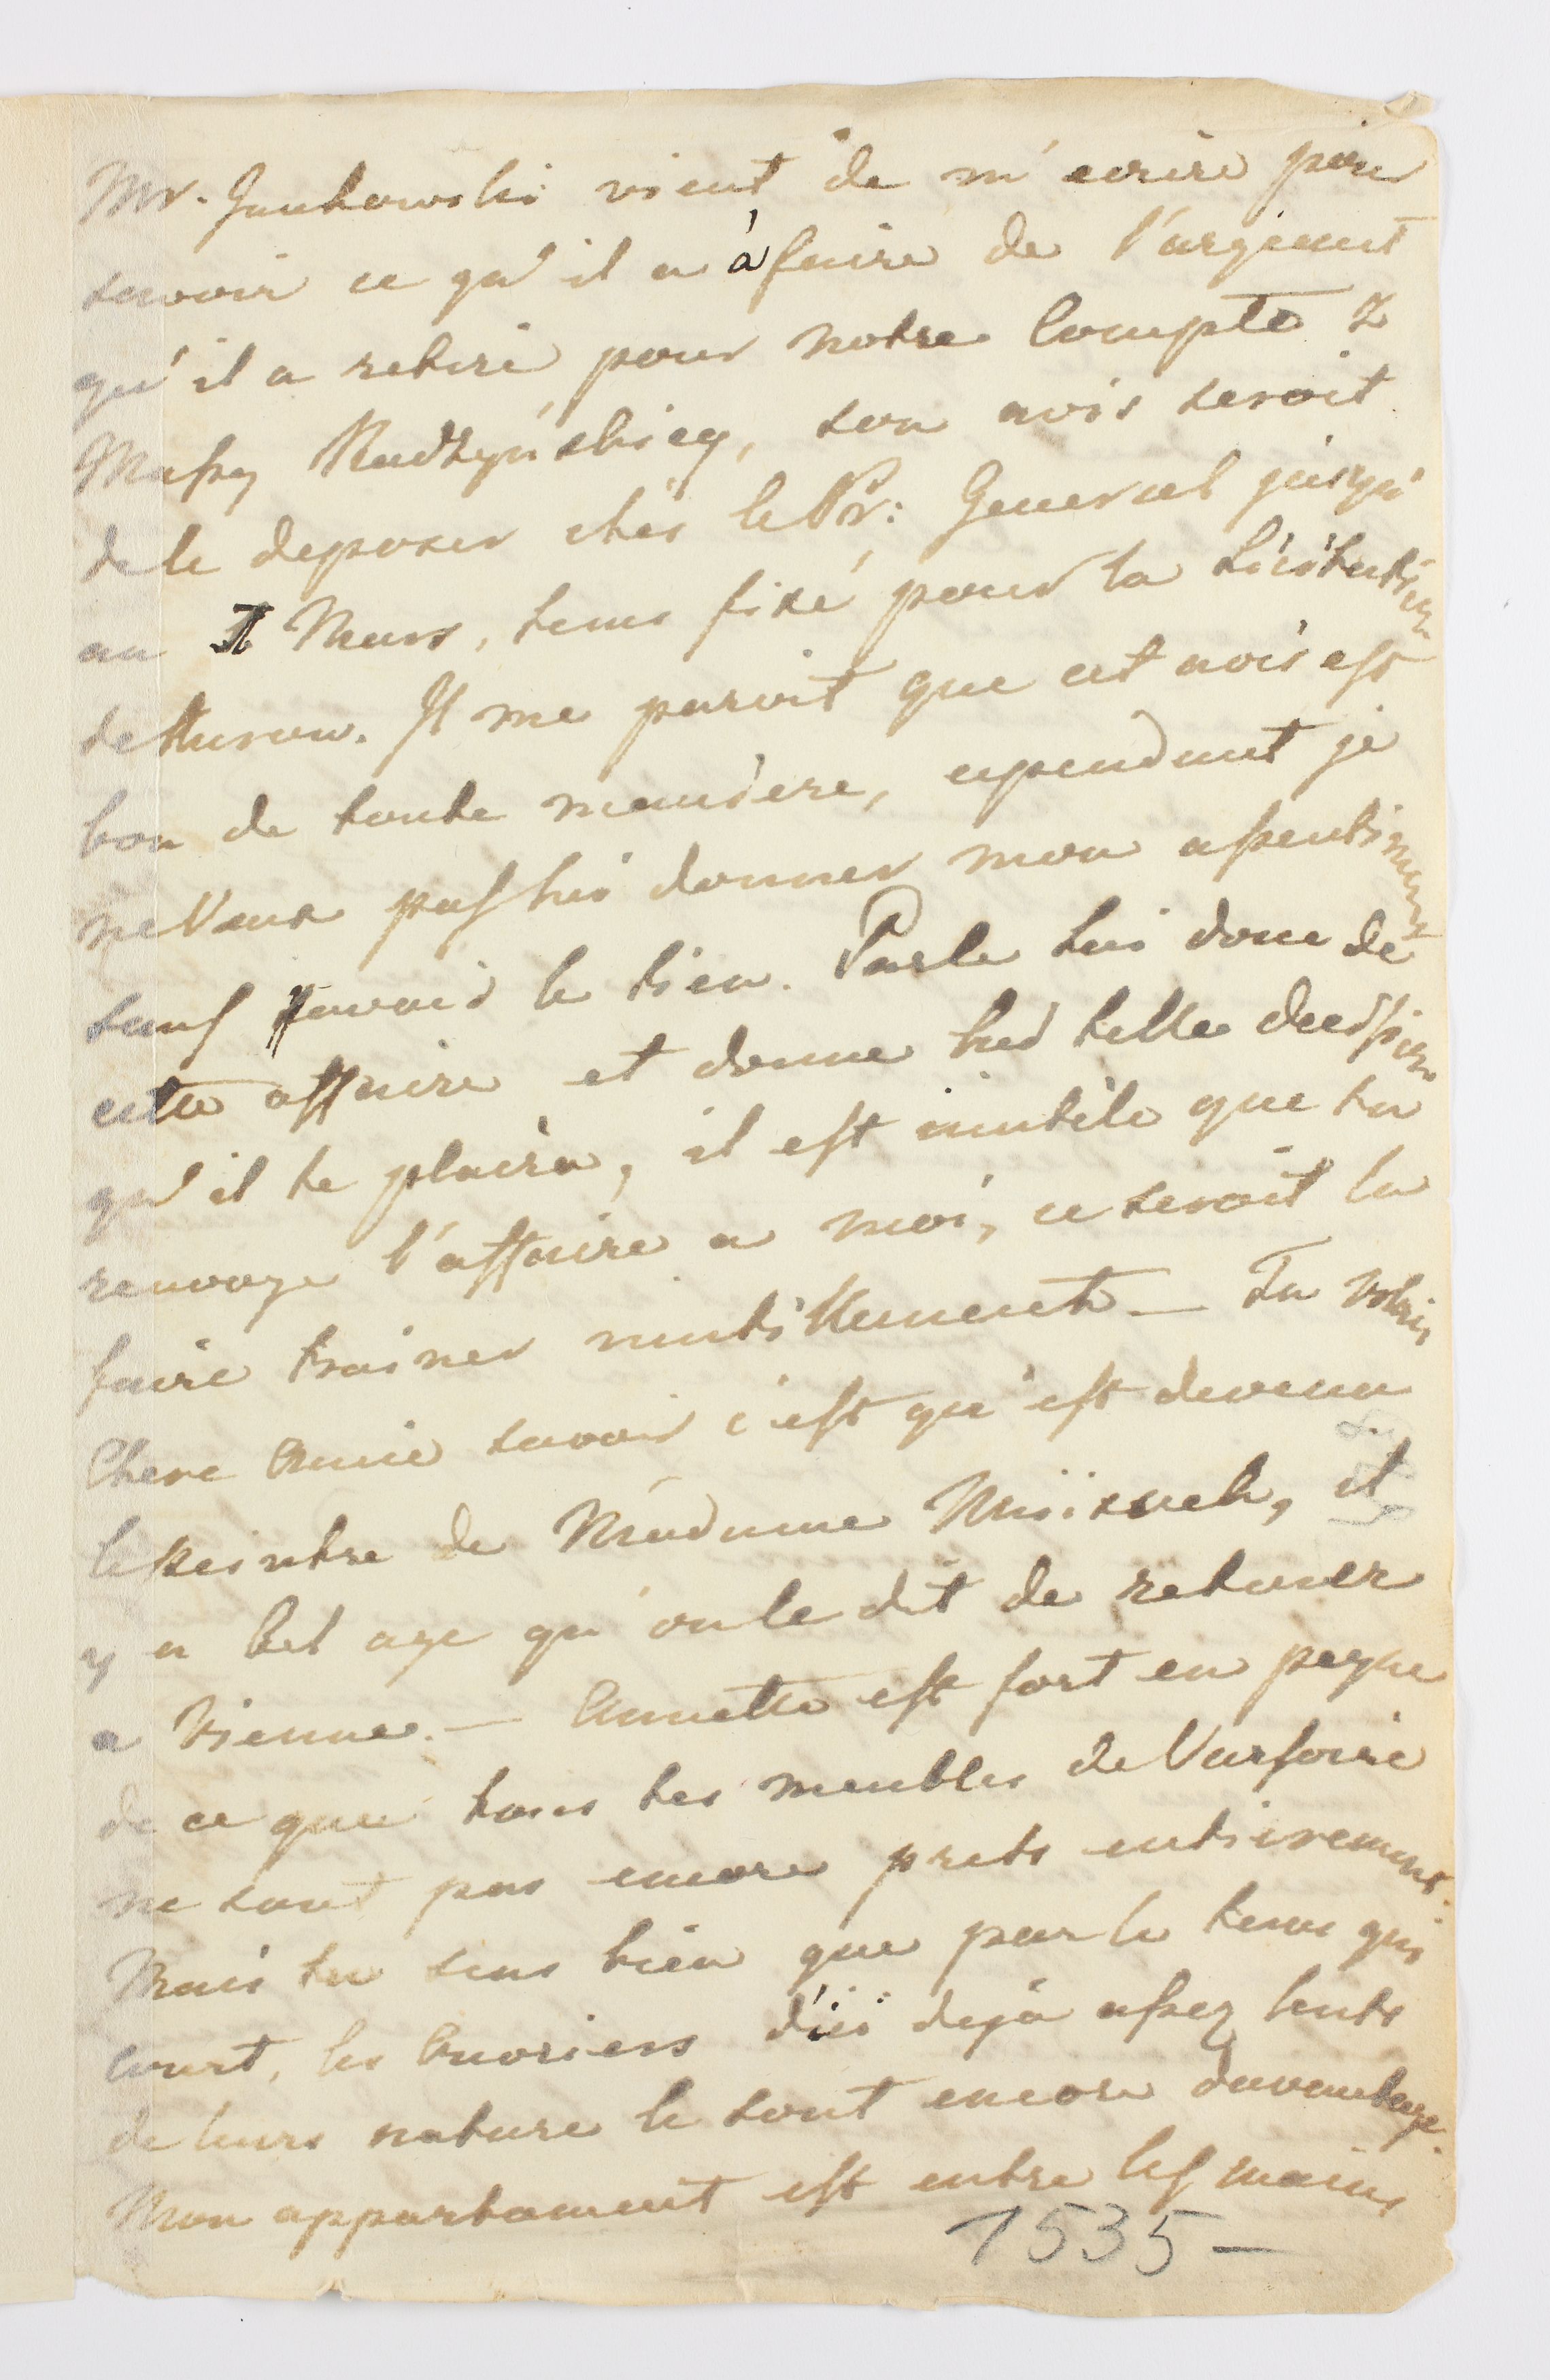 Mr. Jankowski vient de m'ecrire pour
savoir ce qu'il a à faire de l'argeant
qu'il a retiré pour notre Compte z
Massy Radzyńskiey, son avis seroit
de le deposer chés le Pr: General jusqu'
au 1 Mars, tems fixé pour la Licitation
de Kurow. Il me paroit que cet avis est
bon de toute maniere, cependant je
ne Veux pas lui donner mon assentiment
sauf savoir le tien. Parle lui donc de
cette affaire et donne lui telle decission
qu'il te plaira, il est inutile que tu
renvoye l'affaire a moi, ce seroit la
faire trainer inutillement — Tu Voulais
Chere Amie savoir c'est qu'est devenu
le peintre de Madame Mniszech, il
y a bel age qu'on le dit de retour
a Vienne. — Annette est fort en peyne
de ce que tous tes meubles de Varsovie
ne sont pas encore prets entierement.
Mais tu sens bien que par le tems qui
court, les Ouvriers d'ici dejà assez lents
de leurs nature le sont encore davantage.
Mon appartament est entre les mains
1535 —